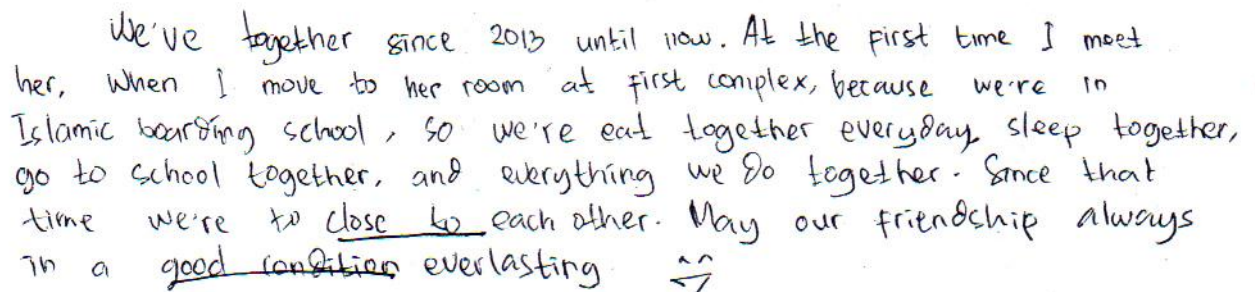 We've together since 2013 until now. At the first time I meet
her, when I move to her room at first complex, because we're in
Islamic boarding school, so we're eat together everyday, sleep together,
go to school together, and everything we do together. Since that
time we're to close to each other. May our friendship always
in a good condition everlasting